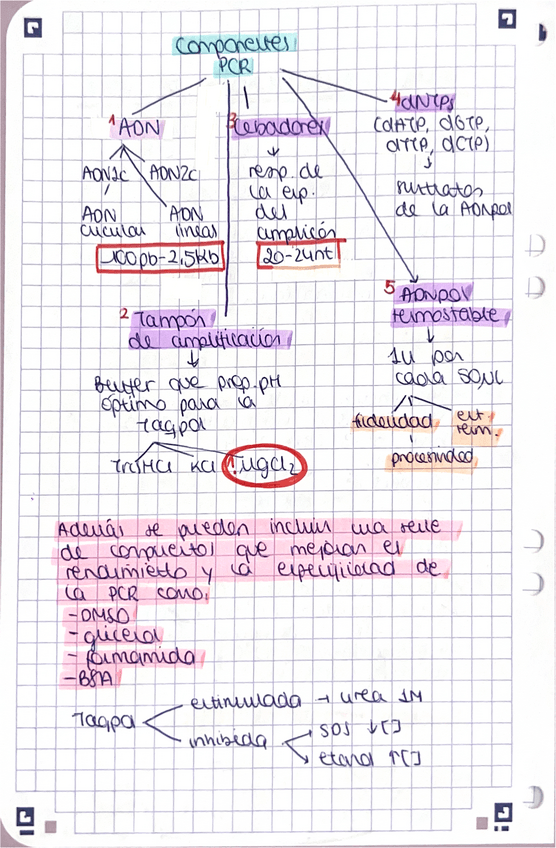 Componentes
PCR
1 ADN
ADN1c ADN2c
ADN
circular
ADN
lineal
100pb-2,5kb
2 Tampón
de amplificación
Buffer que prop. pH
óptimo para la
Taqpol
TrisHCl KCl ! MgCl2
3 Cebadores
resp. de
la esp.
del
amplicón
20-24nt
4 dNTPs
(dATP, dGTP,
dTTP, dCTP)
sustratos
de la ADNpol
5 ADNpol
termostable
1U por
cada 50µL
fidelidad
est.
term.
procesividad
Además se pueden incluir una serie
de compuestos que mejoran el
rendimiento y la especificidad de
la PCR como:
-DMSO
-glicerol
- formamida
-BSA
Taqpol
estimulada → urea 1M
inhibida
SDS ↓[]
etanol ↑[]